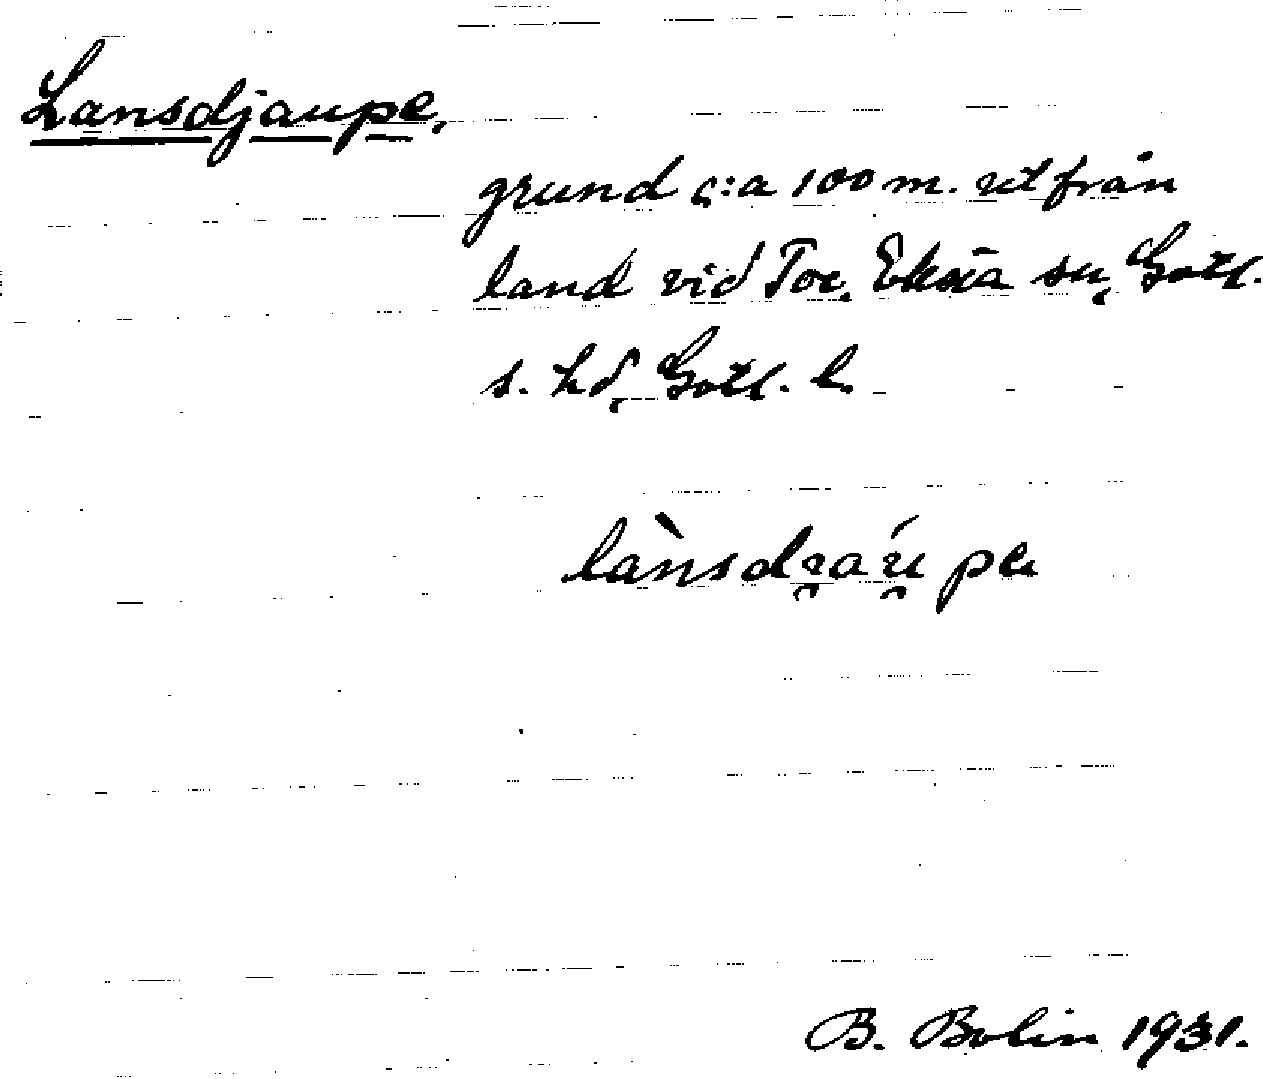 Lansdjaupe,
grund c:a 100 m. ut från
land vid Toe, Eksta sn, Gotl.
s. hd, Gotl. l.
B. Bolin 1931.